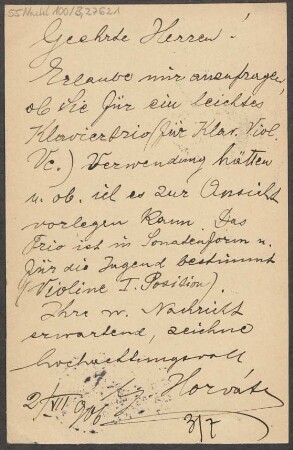 55 Nachl 100/B,27621
Geehrte Herren!
Erlaube mir anzufragen,
ob Sie für ein leichtes
Klaviertrio (für Klav. Viol.
Vc.) Verwendung hätten
u. ob ich es zur Ansicht
vorlegen kann. Das
Trio ist in Sonatenform u.
für die Jugend bestimmt
(Violine I. Position).
Ihre w. Nachricht
erwartend, zeichne
hochachtungsvoll
Horváth
2/VII 906
3/7